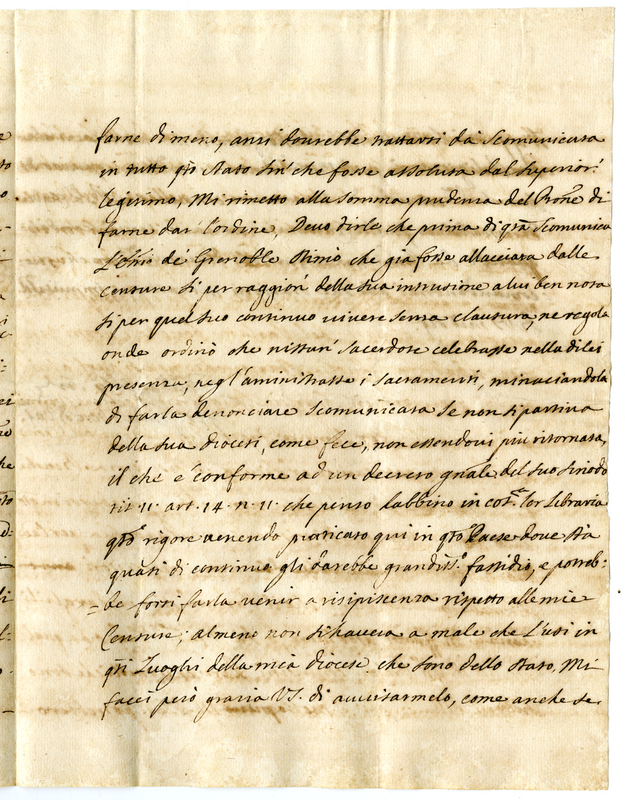 farne dimeno, anzi dourebbe trattarsi dà Scomunicata
in tutto qto stato sin' che fosse assoluta dal superior'
legitimo, Mi rimetto alla somma prudenza del Prone di
farne dar l'ordine, Deuo dirle che prima di qta Scomunica
de Grenoble stimò che gia fosse allacciata dalle
censure si per raggion' della sua intrusione a lui ben nota
si per quel suo continuo uiuere senza clausura, ne regola
onde ordinò che nissun' sacerdote celebrasse nella di lei
presenza, ne gl'aministrasse i sacramenti, minaciandola
di farla denonciare scomunicata se non si partiua
della sua diocesi, come fece, non essendoui piu ritornata,
il che e' conforme ad un decreto gnale del suo sinodo
tit. 11. art. 14. n. 11. che penso l'abbino in lor libraria
qto rigore uenendo pratticato qui in qto Paese doue sta
quasi di continuo gli darebbe grandiss.o fastidio, e potreb:
=be forsi farla uenir a risipiscenza rispetto alle mie
Censure; almeno non si haueia a male che l'usi in
qti Luoghi della mia diocese che sono dello stato, Mi
facci però gratia VS. di auuisarmelo, come anche se